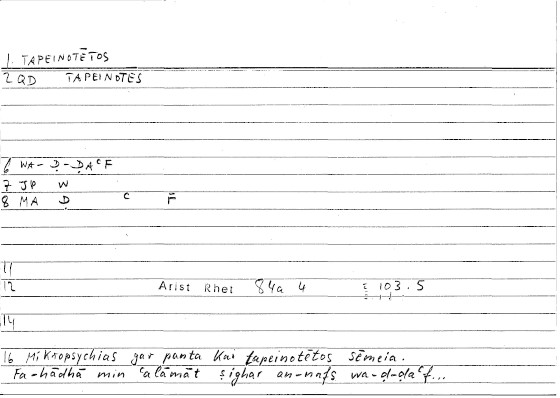 1. TAPEINOTĒTOS
2 QD TAPEINOTES
6 WA- Ḍ-ḌAᶜF
7 JP W
8 MA Ḍ ᶜ F̄
11
12 Arist Rhet 84a 4 = 103.5
14
16 Mikropsychias gar panta kai tapeinotētos sēmeia.
Fa-hādhā min ᶜalāmāt ṣighar an-nafs wa-ḍ-ḍaᶜf...